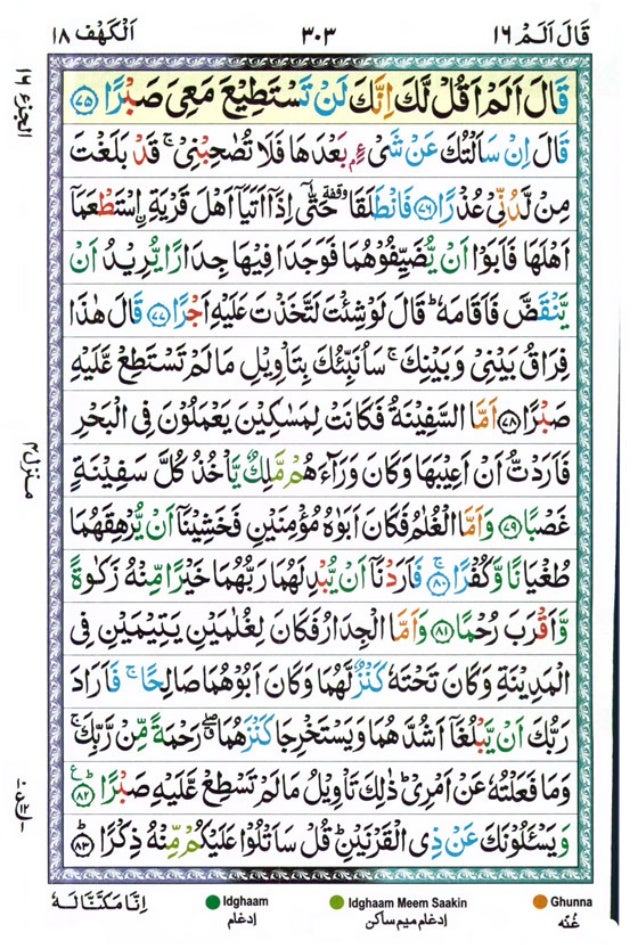 قَالَ اَلَمْ ١٦ ٣٠٣ اَلْكَهْف ١٨
الجزء ١٦
قَالَ اَلَمْ اَقُلْ لَّكَ اِنَّكَ لَنْ تَسْتَطِيْعَ مَعِىَ صَبْرًا ﴿۷۵﴾
قَالَ اِنْ سَاَلْتُكَ عَنْ شَىْءٍۭ بَعْدَهَا فَلَا تُصٰحِبْنِىْ‌ ۚ قَدْ بَلَغْتَ
مِنْ لَّدُنِّىْ عُذْرًا ﴿۷۶﴾ فَانْطَلَقَا وقفة حَتّٰٓى اِذَاۤ اَتَيَاۤ اَهْلَ قَرْيَةِ ۨاسْتَطْعَمَاۤ
اَهْلَهَا فَاَبَوْا اَنْ يُّضَيِّفُوْهُمَا فَوَجَدَا فِيْهَا جِدَارًا يُّرِيْدُ اَنْ
يَّنْقَضَّ فَاَقَامَهٗ‌ ؕ قَالَ لَوْ شِئْتَ لَتَّخَذْتَ عَلَيْهِ اَجْرًا ﴿۷۷﴾ قَالَ هٰذَا
فِرَاقُ بَيْنِىْ وَبَيْنِكَ‌ ۚ سَاُنَبِّئُكَ بِتَاْوِيْلِ مَا لَمْ تَسْتَطِعْ عَّلَيْهِ
صَبْرًا ﴿۷۸﴾ اَمَّا السَّفِيْنَةُ فَكَانَتْ لِمَسٰكِيْنَ يَعْمَلُوْنَ فِى الْبَحْرِ
فَاَرَدْتُّ اَنْ اَعِيْبَهَا وَكَانَ وَرَآءَهُمْ مَّلِكٌ يَّاْخُذُ كُلَّ سَفِيْنَةٍ
غَصْبًا ﴿۷۹﴾ وَاَمَّا الْغُلٰمُ فَكَانَ اَبَوٰهُ مُؤْمِنَيْنِ فَخَشِيْنَاۤ اَنْ يُّرْهِقَهُمَا
طُغْيَانًا وَّكُفْرًا‌ ۚ ﴿۸۰﴾ فَاَرَدْنَاۤ اَنْ يُّبْدِلَهُمَا رَبُّهُمَا خَيْرًا مِّنْهُ زَكٰوةً
وَّاَقْرَبَ رُحْمًا ﴿۸۱﴾ وَاَمَّا الْجِدَارُ فَكَانَ لِغُلٰمَيْنِ يَتِيْمَيْنِ فِى
الْمَدِيْنَةِ وَكَانَ تَحْتَهٗ كَنْزٌ لَّهُمَا وَكَانَ اَبُوْهُمَا صَالِحًا‌ ۚ فَاَرَادَ
رَبُّكَ اَنْ يَّبْلُغَاۤ اَشُدَّهُمَا وَيَسْتَخْرِجَا كَنْزَهُمَا ۖ رَحْمَةً مِّنْ رَّبِّكَ‌ ۚ
وَمَا فَعَلْتُهٗ عَنْ اَمْرِىْ‌ ؕ ذٰلِكَ تَاْوِيْلُ مَا لَمْ تَسْطِعْ عَّلَيْهِ صَبْرًا ؕ ﴿۸۲﴾
وَيَسْـَٔلُوْنَكَ عَنْ ذِى الْقَرْنَيْنِ‌ ؕ قُلْ سَاَتْلُوْا عَلَيْكُمْ مِّنْهُ ذِكْرًا ؕ ﴿۸۳﴾
منزل ٤
اِنَّا مَكَّنَّا لَهٗ
Idghaam
ادغام
Idghaam Meem Saakin
ادغام میم ساکن
Ghunna
غُنّه